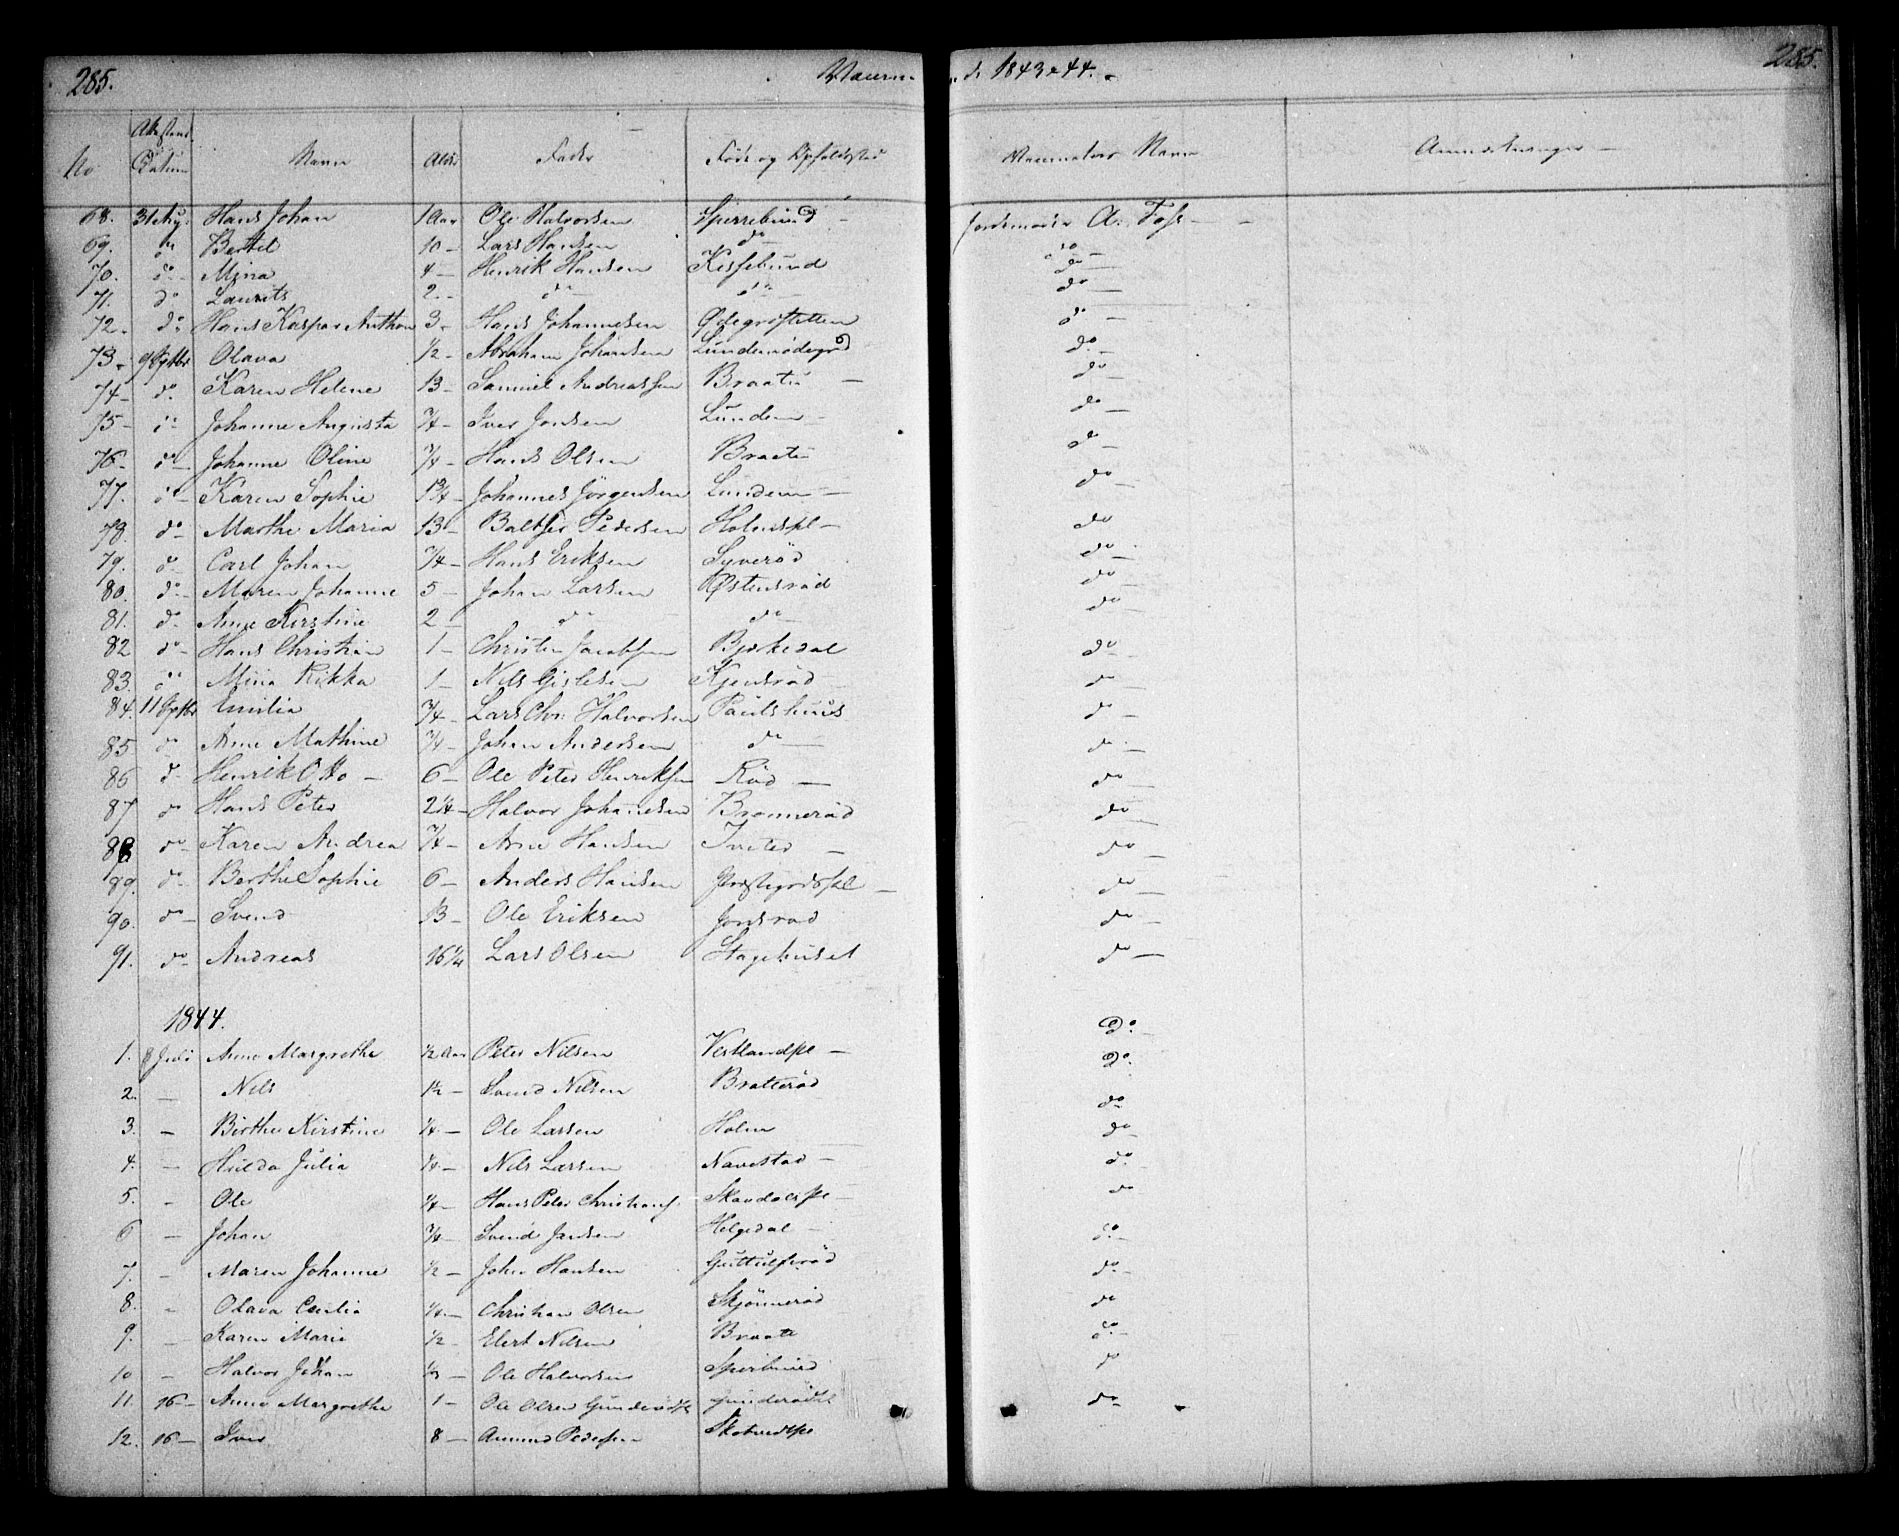 285. Vaccin- d. 1843 & 44. 285.
No Attestens Datum Navn Alder Fader Føde og Opholdssted Vaccinators Navn Anmerkninger
68. 31 Aug. Hans Johan 1 Aar Ole Halvorsen Sperrebund Jordemoder A. Foss
69. do Bertel 10 - Lars Hansen do do
70. do Mina 4 - Henrik Hansen Kissebund do
71. do Laurits 2 - do do do
72. do Hans Kaspar Anthon 3 - Hans Johannesen Ødegrdsletten do
73. 9 Septbr Olava 1/2 - Abraham Johansen Lundemødegrd do
74 - do Karen Helene 13 - Samuel Andreassen Braate do
75 - do Johanne Augusta 3/4 - Iver Jonsen Lundem do
76 - do Johanne Oline 3/4 - Hans Olsen Braate do
77. do Karen Sophie 1 3/4 - Johannes Jörgensen Lundem do
78. do Marthe Maria 13 - Baltser Pedersen Holmspl do
79. do Carl Johan 3/4 - Hans Eriksen Syveröd do
80. do Maren Johanne 5 - Johan Larsen Østensröd do
81. do Anne Kirstine 2 - do do do
82 do Hans Christian 1 - Christen Jacobsen Bjerkedal do
83. do Mina Rikka 1 - Nils Gislesen Kjensröd do
84. 11 Septbr Emilia 3/4 - Lars Chr. Halvorsen Paulshuus do
85 do Anne Mathine 3/4 - Johan Andersen do do
86 do Henrik Otto - 6 - Ole Peter Henriksen Röd do
87 do Hans Peter 2 1/4 - Halvor Johannesen Bronneröd do
88 do Karen Andrea 3/4 - Arne Hansen Tveter do
89. do Berthe Sophie 6 - Anders Hansen Prestegrdspl do
90. do Svend 13 - Ole Eriksen Jonsrød do
91. do Andreas 16 1/4 Lars Olsen Stagehuset do
1844. Do
1. 8 Juli Anne Margrethe 1/2 Aar Peter Nilsen Vestlandpl - Do
2. - Nils 1 1/2 - Svend Nilsen Bratteröd do
3. - Birthe Kirstine 1/4 - Ole Larsen Holm do
4. - Hulda Julia 1/4 - Nils Larsen Navestad - do
5. - Ole 1/4 - Hans Peter Christians. Skaudalspl - do
6 - Johan 3/4 - Svend Jansen Helgedal - do
7. - Maren Johanne 1/2 - John Hansen Guttulsröd do
8. - Olava Cecilia 1/4 - Christian Olsen Skjönneröd do
9. - Karen Marie 1/2 - Elert Nilsen Braate do
10 - Halvor Johan 1/2 - Ole Halvorsen Sperrebund do
11. 16 - Anne Margrethe 1 - Ole Olsen Gunderödpl Gunderödpl do
12. 16 - Iver 8 - Amund Pedersen Skotvedtpl